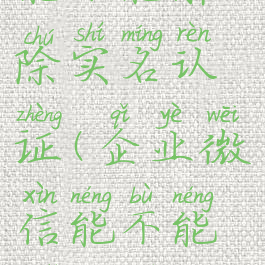 chú shí míng rèn
除实名认
zhèng qǐ yè wēi
证(企业微
xìn néng bù néng
信能不能